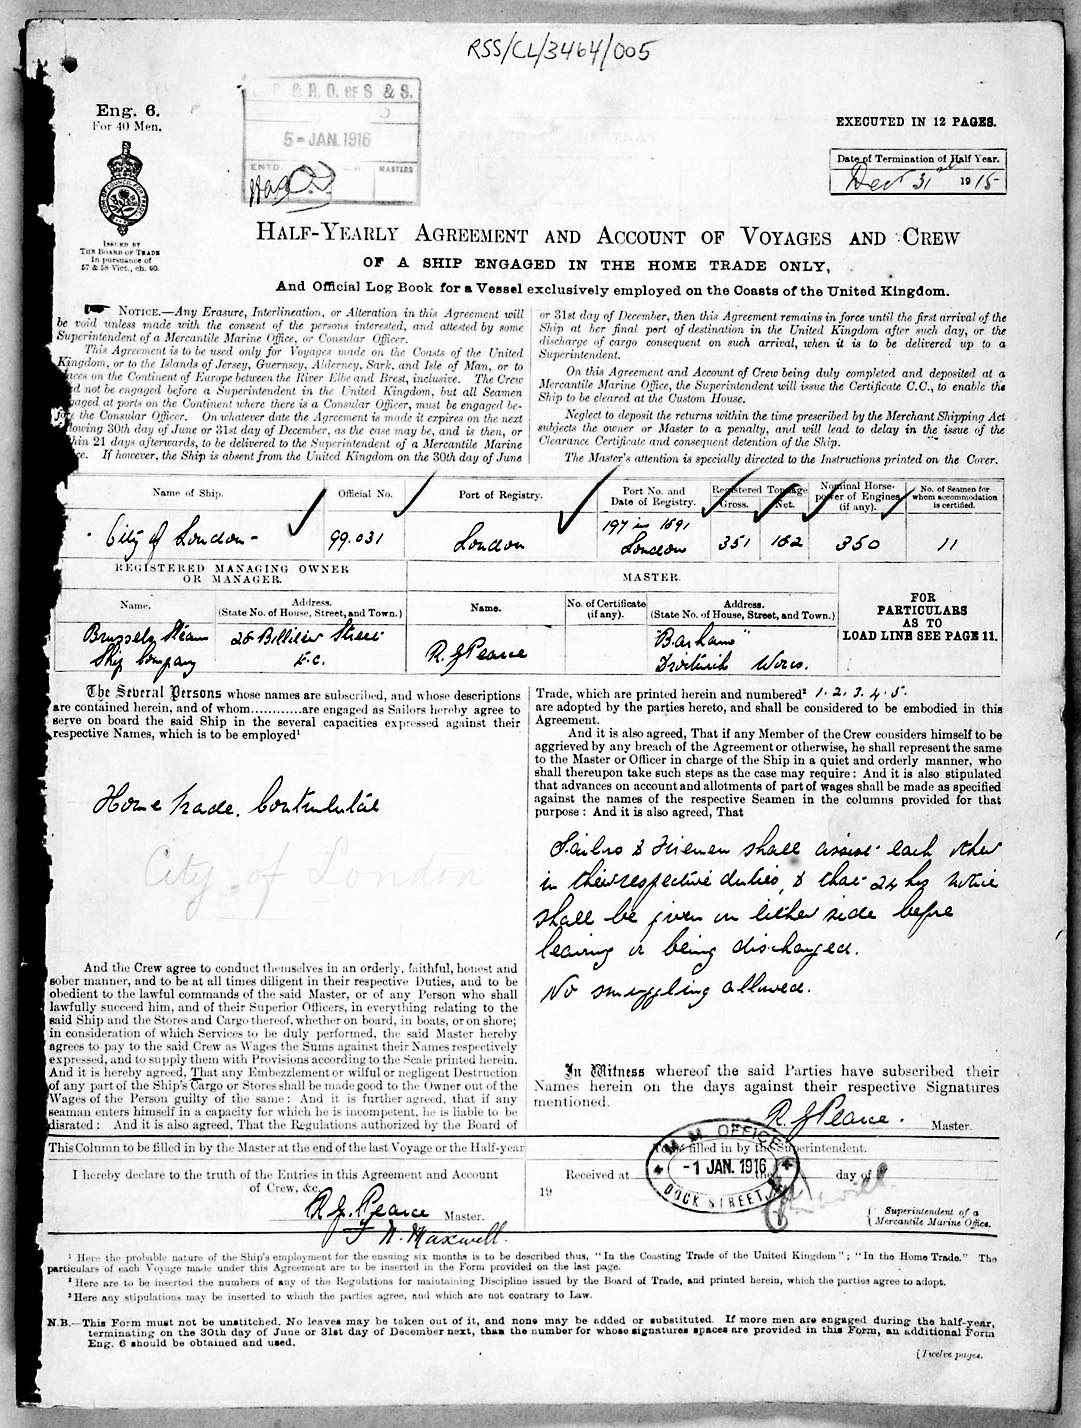 RSS/CL/3464/005
Eng. 6.
For 40 Men.
& R. O. OF S & S.
5 - JAN. 1916
ENTD
MASTERS
EXECUTED IN 12 PAGES.
Date of Termination of Half Year.
Dec 31st 1915
ISSUED BY
THE BOARD OF TRADE
In pursuance of
57 & 58 Vict., ch. 60.
HALF-YEARLY AGREEMENT AND ACCOUNT OF VOYAGES AND CREW
OF A SHIP ENGAGED IN THE HOME TRADE ONLY,
And Official Log Book for a Vessel exclusively employed on the Coasts of the United Kingdom.
NOTICE.—Any Erasure, Interlineation, or Alteration in this Agreement will
be void unless made with the consent of the persons interested, and attested by some
Superintendent of a Mercantile Marine Office, or Consular Officer.
This Agreement is to be used only for Voyages made on the Coasts of the United
Kingdom, or to the Islands of Jersey, Guernsey, Alderney, Sark, and Isle of Man, or to
on the Continent of Europe between the River Elbe and Brest, inclusive. The Crew
not be engaged before a Superintendent in the United Kingdom, but all Seamen
at ports on the Continent where there is a Consular Officer, must be engaged be-
the Consular Officer. On whatever date the Agreement is made it expires on the next
30th day of June or 31st day of December, as the case may be, and is then, or
21 days afterwards, to be delivered to the Superintendent of a Mercantile Marine
If however, the Ship is absent from the United Kingdom on the 30th day of June
or 31st day of December, then this Agreement remains in force until the first arrival of the
Ship at her final port of destination in the United Kingdom after such day, or the
discharge of cargo consequent on such arrival, when it is to be delivered up to a
Superintendent.
On this Agreement and Account of Crew being duly completed and deposited at a
Mercantile Marine Office, the Superintendent will issue the Certificate C.C., to enable the
Ship to be cleared at the Custom House.
Neglect to deposit the returns within the time prescribed by the Merchant Shipping Act
subjects the owner or Master to a penalty, and will lead to delay in the issue of the
Clearance Certificate and consequent detention of the Ship.
The Master's attention is specially directed to the Instructions printed on the Cover.
Name of Ship.
Official No.
Port of Registry.
Port No. and
Date of Registry.
Registered Tonnage
Gross. Net.
Nominal Horse-
power of Engines
(if any).
No. of Seamen for
whom accommodation
is certified.
City of London
99.031
London
197 in 1891
London
351
182
350
11
REGISTERED MANAGING OWNER
OR MANAGER.
MASTER.
Name.
Address.
(State No. of House, Street, and Town.)
Name.
No. of Certificate
(if any).
Address.
(State No. of House, Street, and Town.)
FOR
PARTICULARS
AS TO
LOAD LINE SEE PAGE 11.
Brussels Steam
Ship Company
28 Billiter Street
E.C.
R. J Pearce
"Barham"
Droitwich Worcs.
The Several Persons whose names are subscribed, and whose descriptions
are contained herein, and of whom............are engaged as Sailors hereby agree to
serve on board the said Ship in the several capacities expressed against their
respective Names, which is to be employed¹
Home Trade. Continental
City of London
And the Crew agree to conduct themselves in an orderly, faithful, honest and
sober manner, and to be at all times diligent in their respective Duties, and to be
obedient to the lawful commands of the said Master, or of any Person who shall
lawfully succeed him, and of their Superior Officers, in everything relating to the
said Ship and the Stores and Cargo thereof, whether on board, in boats, or on shore;
in consideration of which Services to be duly performed, the said Master hereby
agrees to pay to the said Crew as Wages the Sums against their Names respectively
expressed, and to supply them with Provisions according to the Scale printed herein.
And it is hereby agreed, That any Embezzlement or wilful or negligent Destruction
of any part of the Ship's Cargo or Stores shall be made good to the Owner out of the
Wages of the Person guilty of the same: And it is further agreed, that if any
seaman enters himself in a capacity for which he is incompetent, he is liable to be
disrated: And it is also agreed, That the Regulations authorized by the Board of
Trade, which are printed herein and numbered² 1. 2. 3. 4. 5.
are adopted by the parties hereto, and shall be considered to be embodied in this
Agreement.
And it is also agreed, That if any Member of the Crew considers himself to be
aggrieved by any breach of the Agreement or otherwise, he shall represent the same
to the Master or Officer in charge of the Ship in a quiet and orderly manner, who
shall thereupon take such steps as the case may require: And it is also stipulated
that advances on account and allotments of part of wages shall be made as specified
against the names of the respective Seamen in the columns provided for that
purpose: And it is also agreed, That
Sailors & Firemen shall assist each other
in their respective duties, & that 24 hrs notice
shall be given on either side before
leaving or being discharged.
No smuggling allowed.
In Witness whereof the said Parties have subscribed their
Names herein on the days against their respective Signatures
mentioned.
R. J Pearce. Master.
This Column to be filled in by the Master at the end of the last Voyage or the Half-year
I hereby declare to the truth of the Entries in this Agreement and Account
of Crew, &c.
R. J. Pearce Master.
F. N. Maxwell.
To be filled in by the Superintendent.
Received at the day of
19
M. M. OFFICE
-1 JAN. 1916
DOCK STREET, E.
Superintendent of a
Mercantile Marine Office.
¹ Here the probable nature of the Ship's employment for the ensuing six months is to be described thus, "In the Coasting Trade of the United Kingdom"; "In the Home Trade." The
particulars of each Voyage made under this Agreement are to be inserted in the Form provided on the last page.
² Here are to be inserted the numbers of any of the Regulations for maintaining Discipline issued by the Board of Trade, and printed herein, which the parties agree to adopt.
³ Here any stipulations may be inserted to which the parties agree, and which are not contrary to Law.
N.B.—This Form must not be unstitched. No leaves may be taken out of it, and none may be added or substituted. If more men are engaged during the half-year,
terminating on the 30th day of June or 31st day of December next, than the number for whose signatures spaces are provided in this Form, an additional Form
Eng. 6 should be obtained and used.
[Twelve pages.